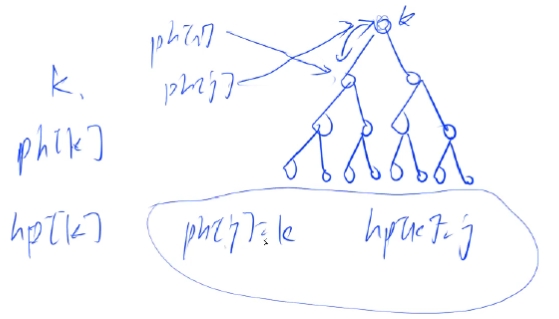 k
ph[i]
ph[j]
k.
ph[k]
hp[k]
ph[j]=k hp[k]=j